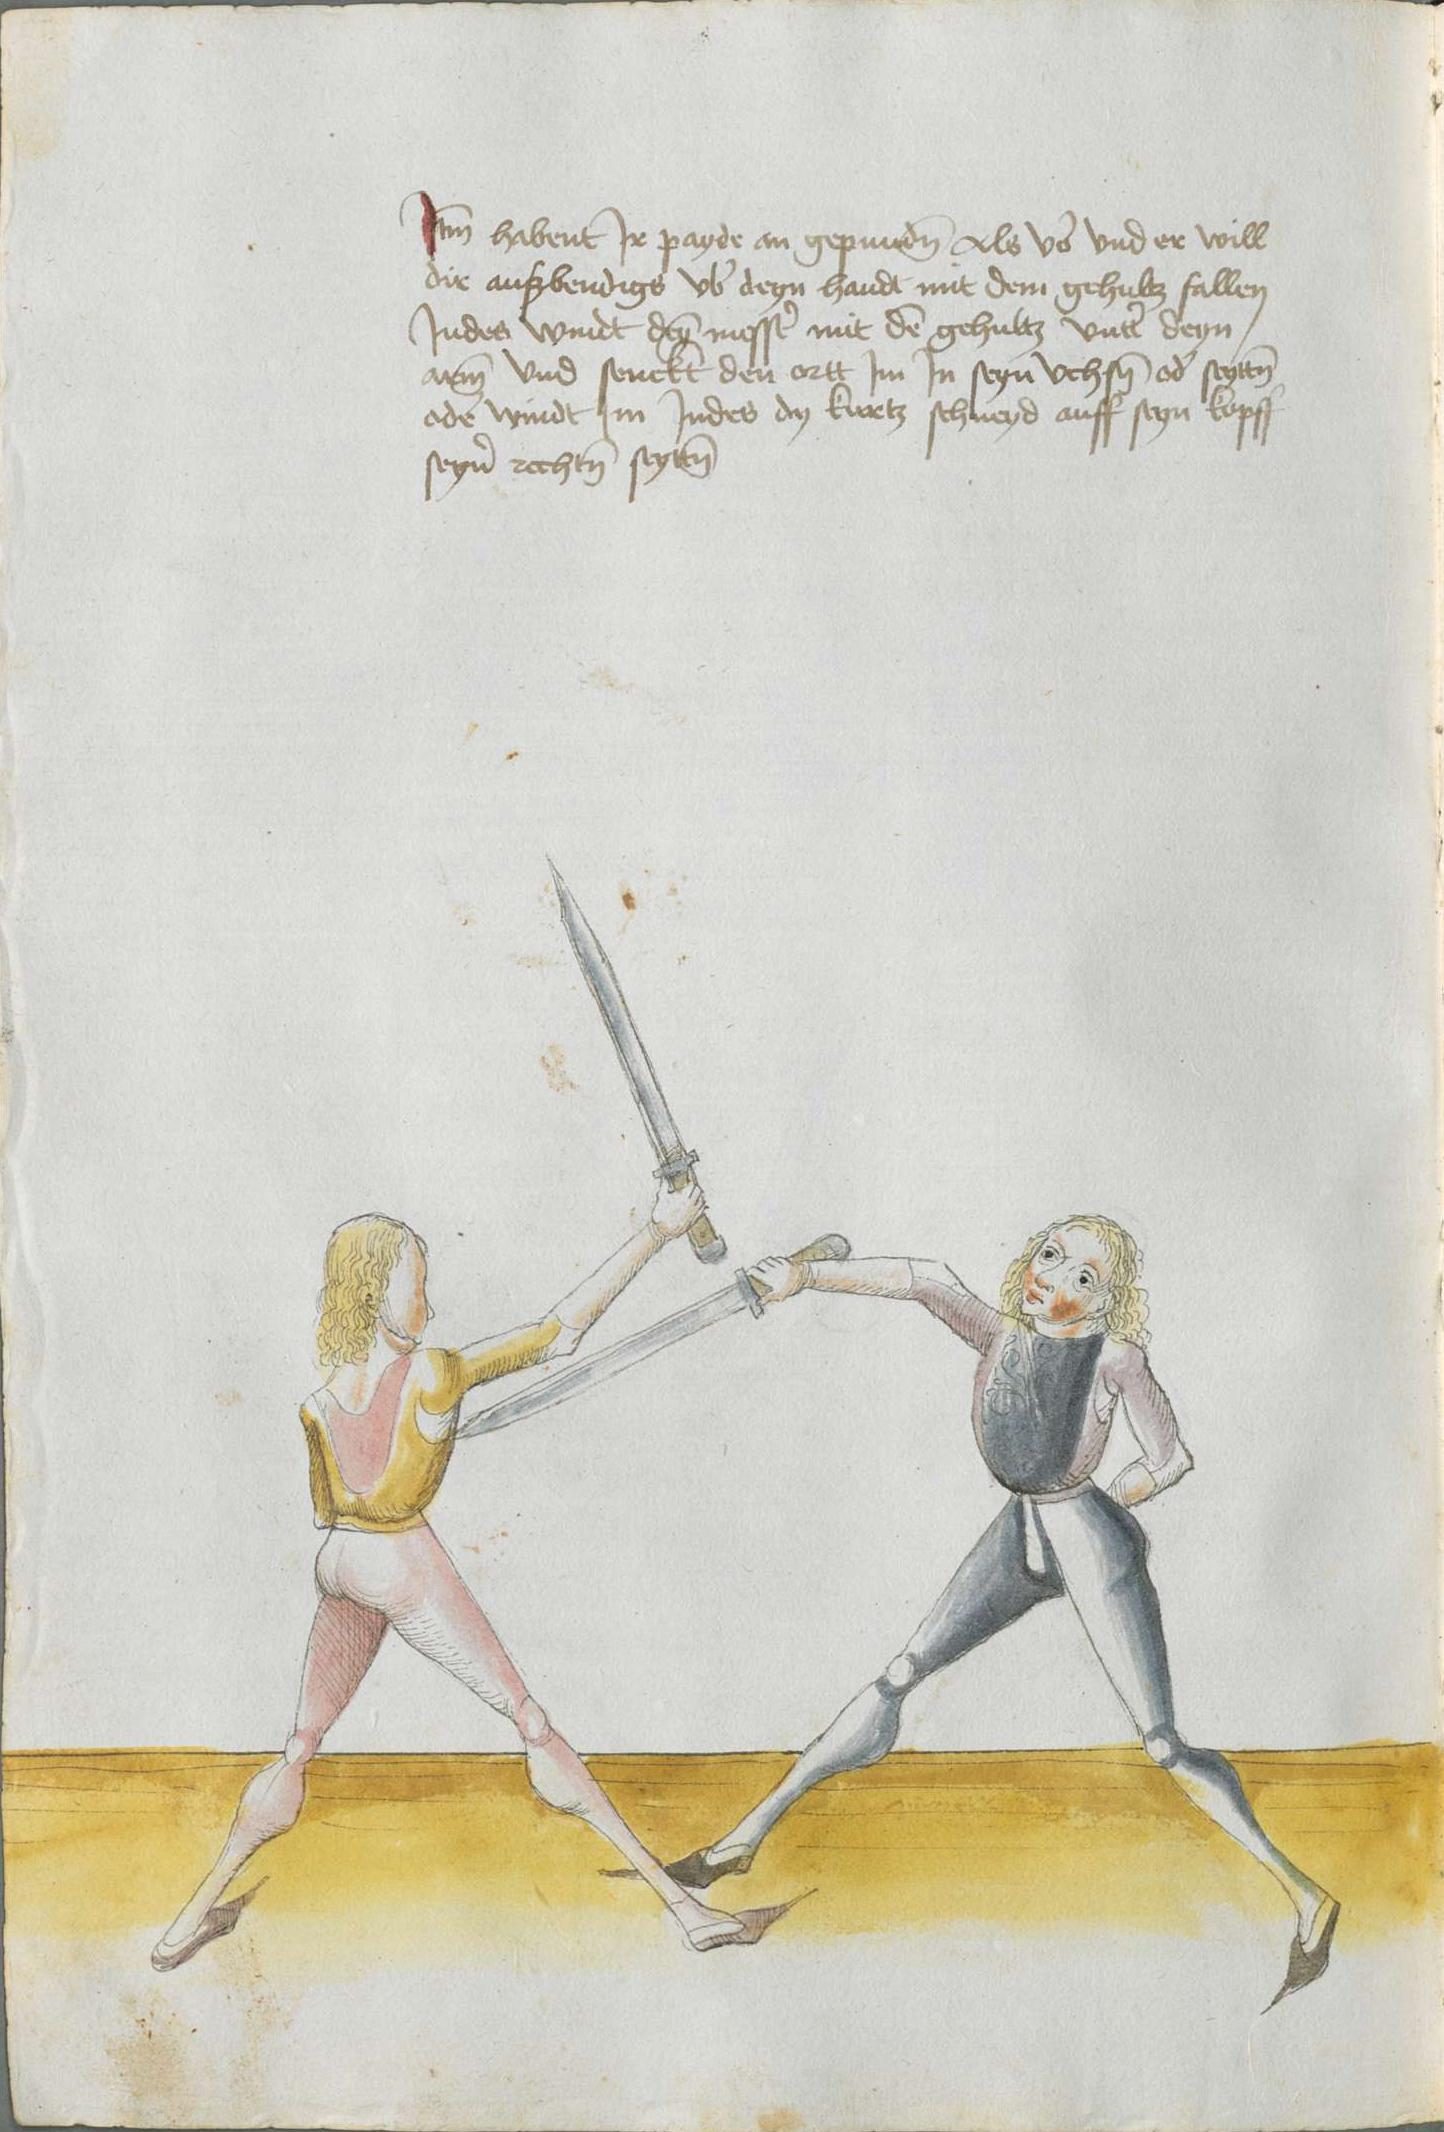 Itm̄ habent Ir payde an gepundn̄ Als vō und er will
dir auszbendigs vb̄ deyn handt mit dem gehultz fallen
Indes windt deȳ messr̄ mit dē gehultz untr̄ deyn
arm̄ vnd senckt den ortt Im In seyn vchsn̄ od̄ seyttn̄
ode windt im Indes dy kurtz schneyd auff seyn kopff
seyn̄ rechtn̄ seyttn̄